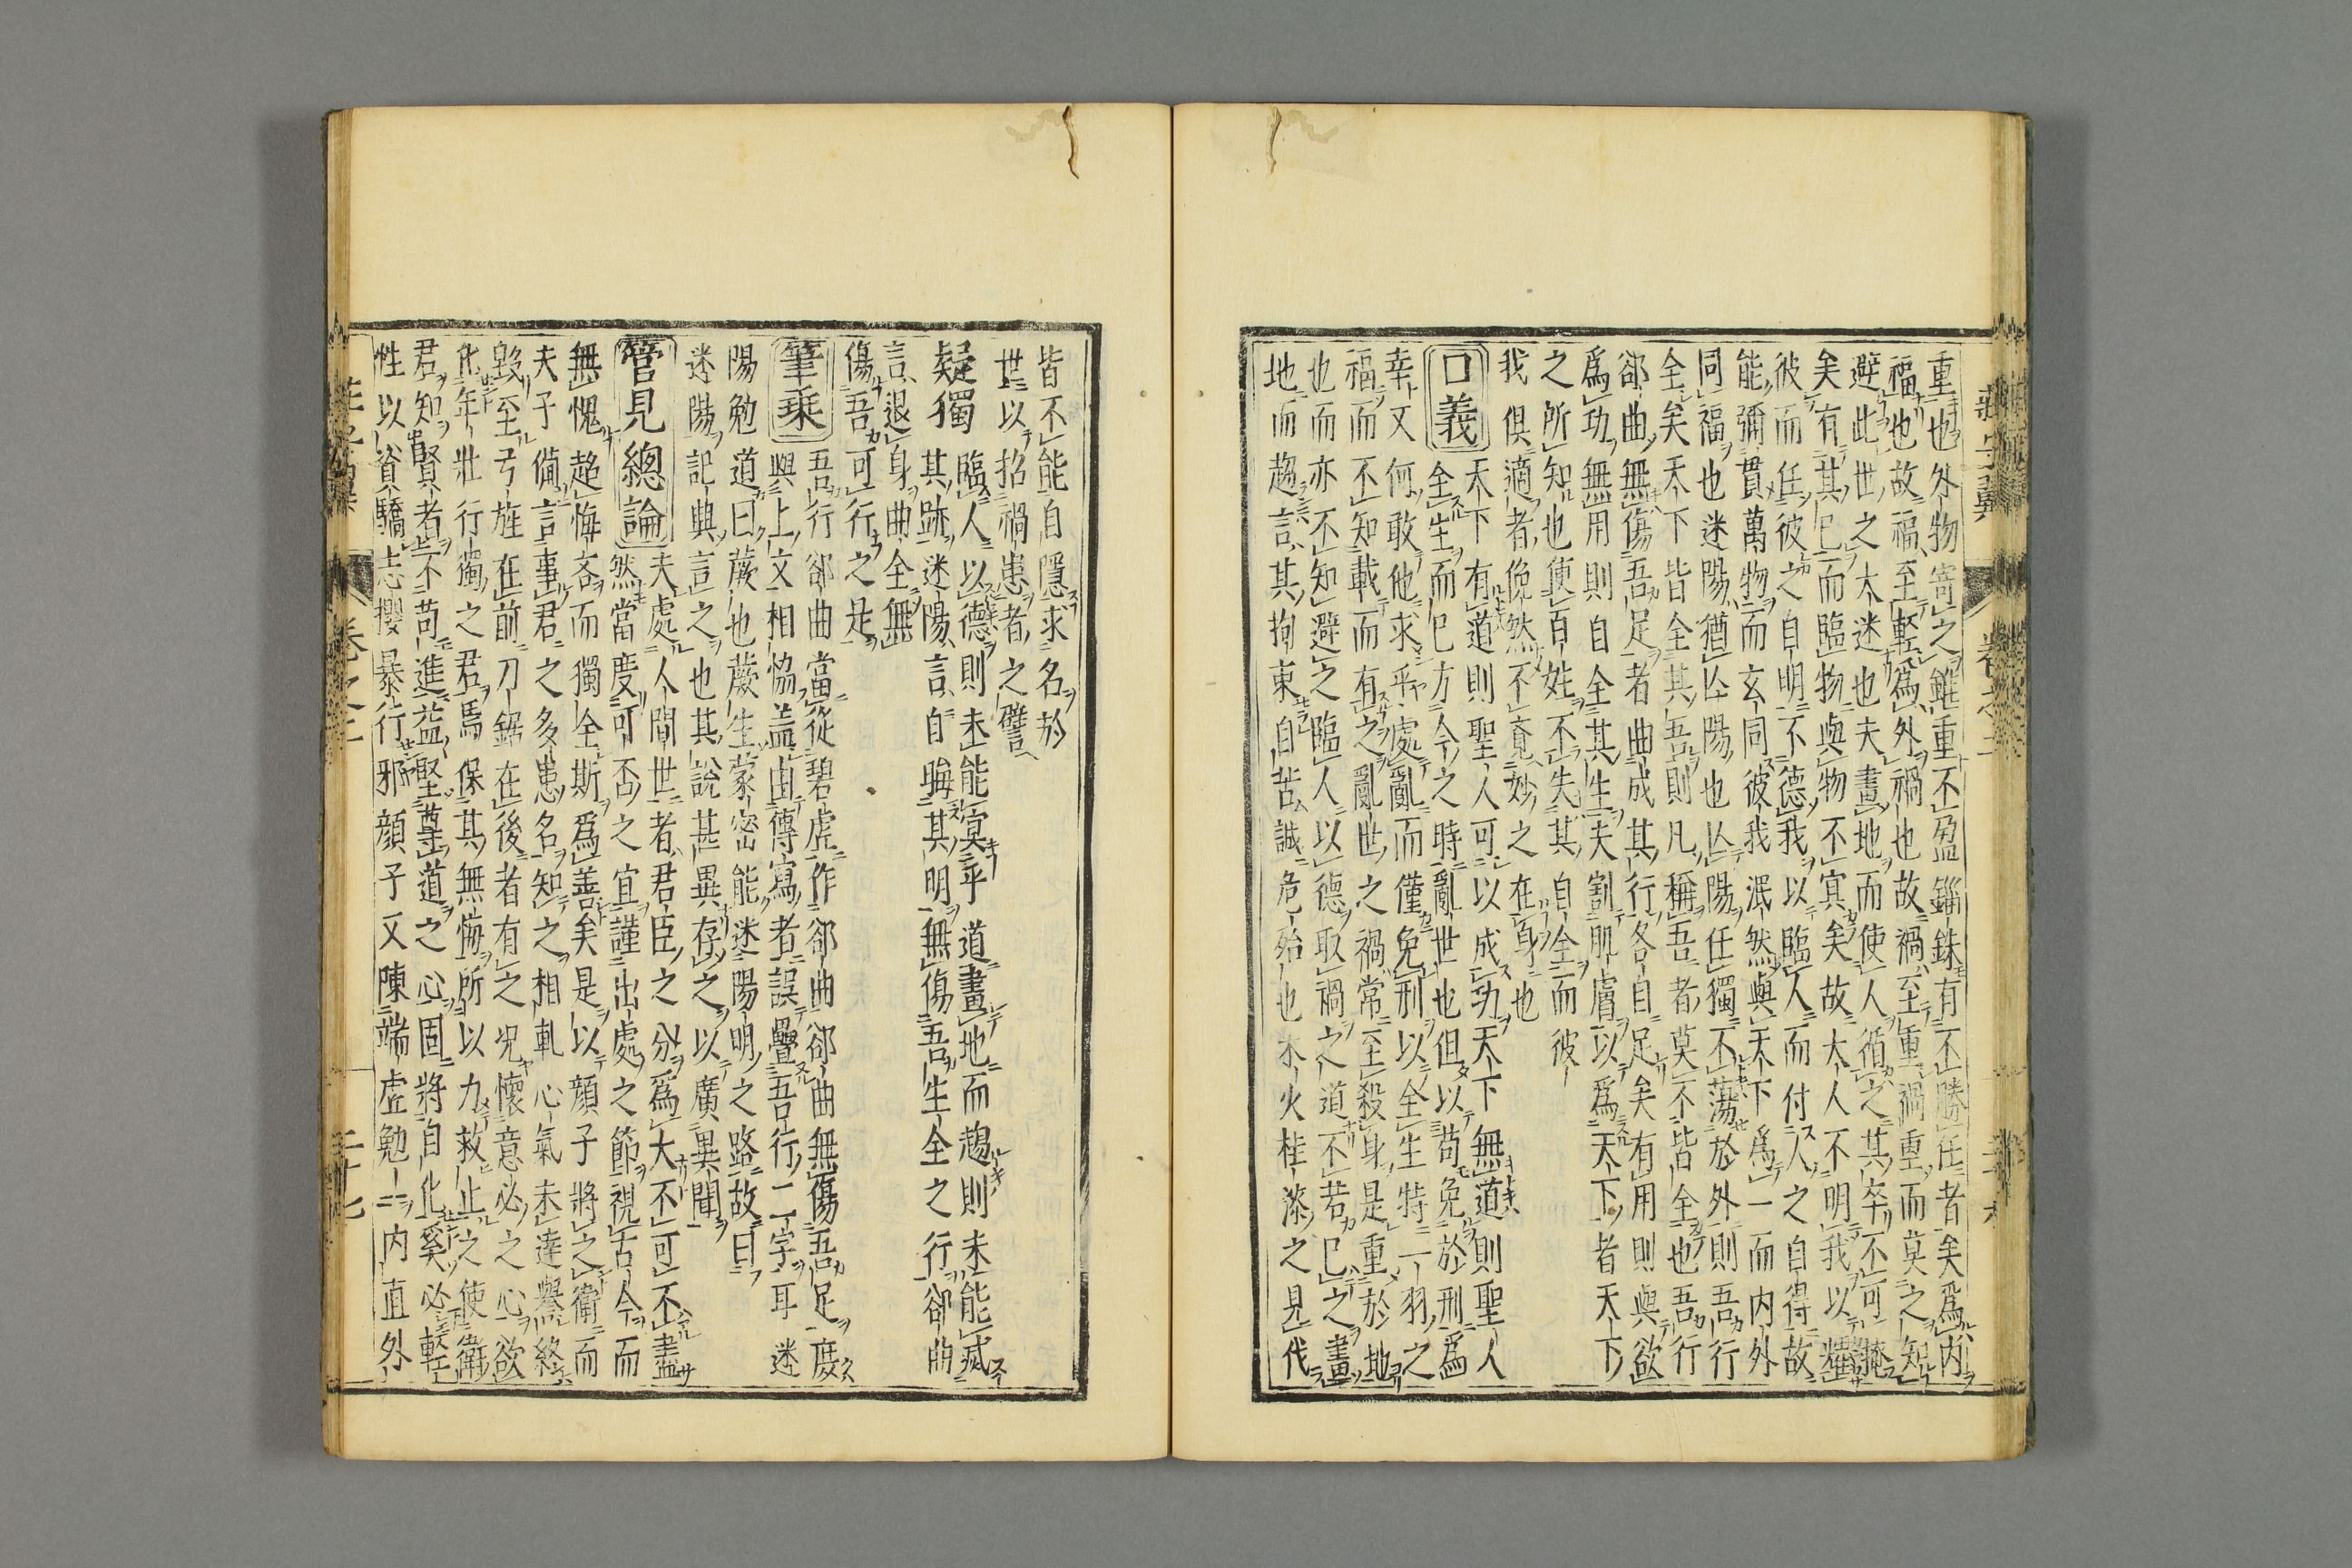 重也外物寄之雖重不盈錙銖有不勝任者矣爲内
福也故福至輕爲外禍也故禍至重禍重而莫之知
避此世之大迷也夫畫地而使人循之其卒不可掩
矣有其已而臨物與物不冥矣故大人不明我以耀
彼而任彼之自明不德我以臨人而付人之自得故
能彌貫萬物而玄同彼我泯然與天下爲一而内外
同福也迷陽猶亾陽也亾陽任獨不蕩於外則吾行
全矣天下皆全其吾則凡稱吾者莫不皆全也吾行
郤曲無傷吾足者曲成其行各自足矣有用則與欲
爲功無用則自全其生夫割肌膚以爲天下者天下
之所知也使百姓不失其自全而彼
我俱適者俛然不覺妙之在身也
口義
天下有道則聖人可以成功天下無道則聖人
全生而已方今之時亂世也但以苟免於刑爲
幸又何敢他求乎處亂而僅免刑以全生特一羽之
福而不知載而有之亂世之禍常至殺身是重於地
也而亦不知避之臨人以德取禍之道不若已之畫
地而趨言其拘束自苦誠危殆也木火桂漆之見伐
皆不能自隱求名於
世以招禍患者之譬
疑獨
臨人以德則未能冥乎道畫地而趨則未能滅
其跡迷陽言自晦其明無傷吾生全之行郤曲
言退身曲全無
傷吾可行之足
筆乗
吾行郤曲當從碧虚作郤曲郤曲無傷吾足庻
與上文相恊盖曲傳寫者誤疊吾行二字耳迷
陽勉道曰蕨也蕨生蒙密能迷陽明之路故曰
迷陽記與言之也其説甚異存之以廣異聞
管見總論
夫處人間世者君臣之分爲大不可不盡
然當度可否之宜謹出處之節視古今而
無愧超悔吝而獨全斯爲善矣是以顔子將之衛而
夫子備言事君之多患名知之相軋心氣未達譽終
毀至弓旌在前刀鋸在後者有之況懷意必之心欲
化年壯行獨之君焉保其無悔所以力救止之使衛
君知賢者不苟進益堅尊道之心固將自化奚必輕
性以資驕志攖暴行邪顔子又陳端虚勉一内直外